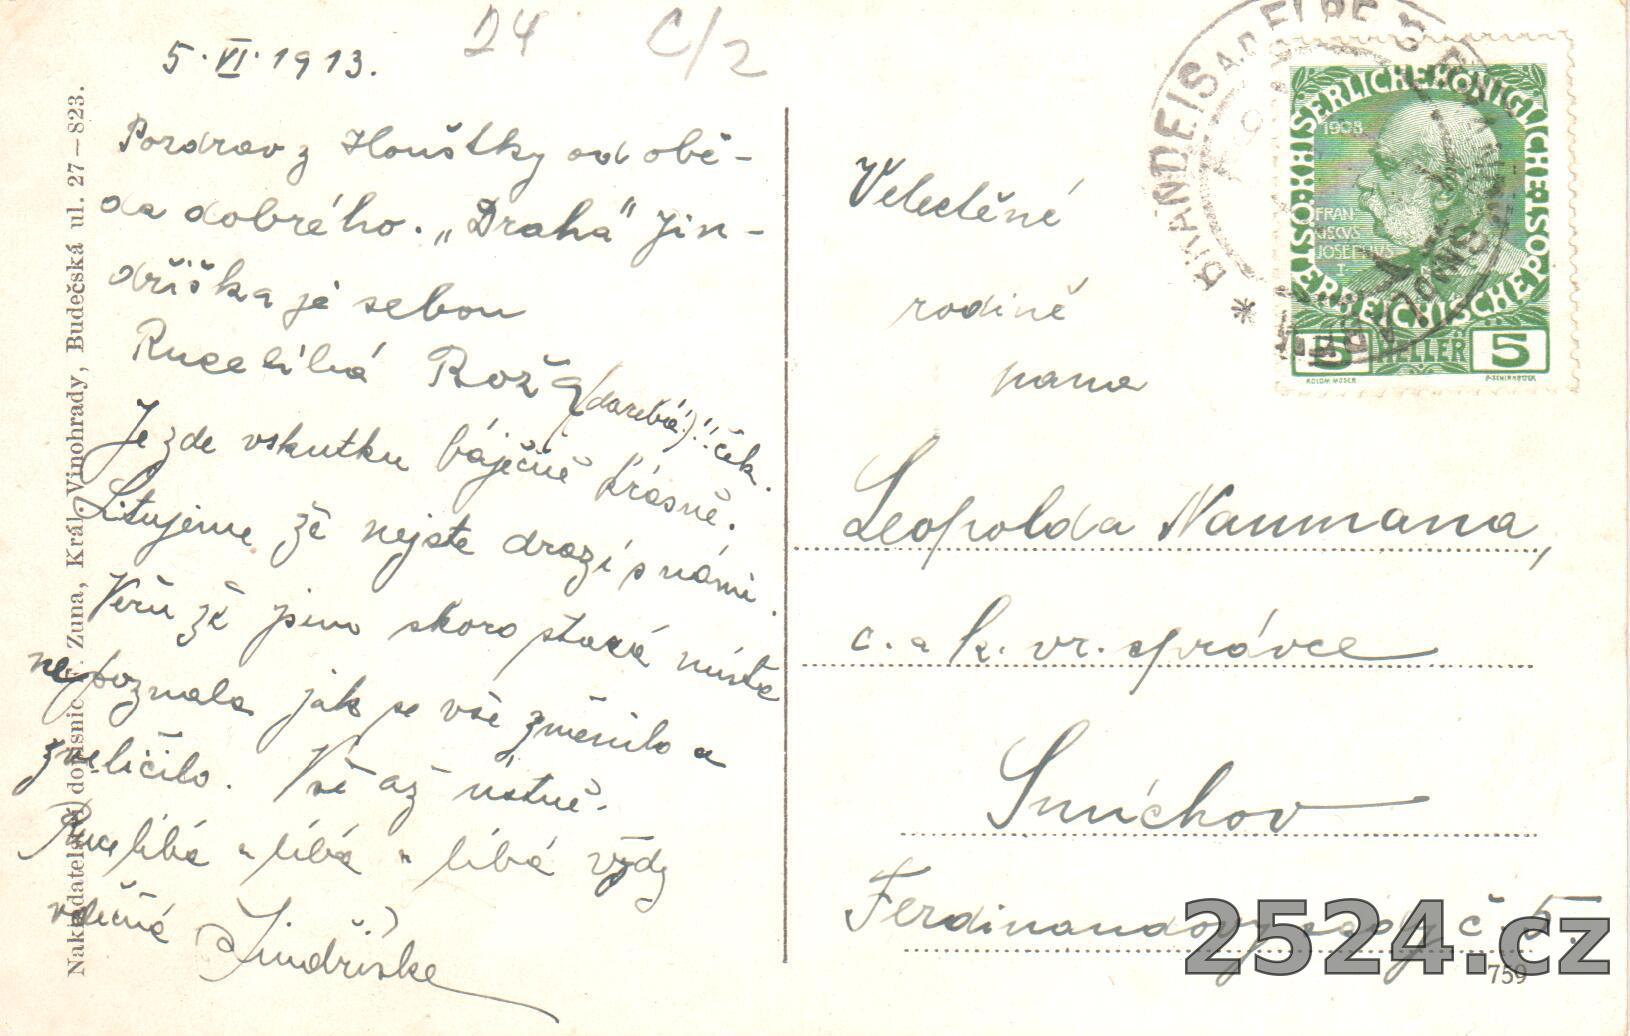 5. VI. 1913.
D4 C/2
Pozdrav z Houštky od obě-
da dobrého. „Drahá" Jin-
dřiška je sebou
Ruce líbá Rož
(darebá)!! ček.
Je zde vskutku báječně krásně.
Litujeme že nejste drazí s námi.
Věru že jsem skoro stará místa
nepoznala jak se vše změnilo a
zveličilo. Vše až ústně.
Ruce líbá " líbá " líbá vždy
vděčná Jindřiška
Nakladatelství dopisnic Zuna, Král. Vinohrady, Budečská ul. 27—823.
Veletěné
rodině
pana
Leopolda Naumana,
c. a k. vr. správce
Smíchov
Ferdinandovy sady č 5.
759
BRANDEIS A.D. ELBE
KAISERLICHE KÖNIGLICHE ÖSTERREICHISCHE POST
1908
FRAN
CISCVS
JOSEPHVS
I
5 HELLER 5
KOLOM. MOSER
F. SCHIRNBÖCK
2524.cz